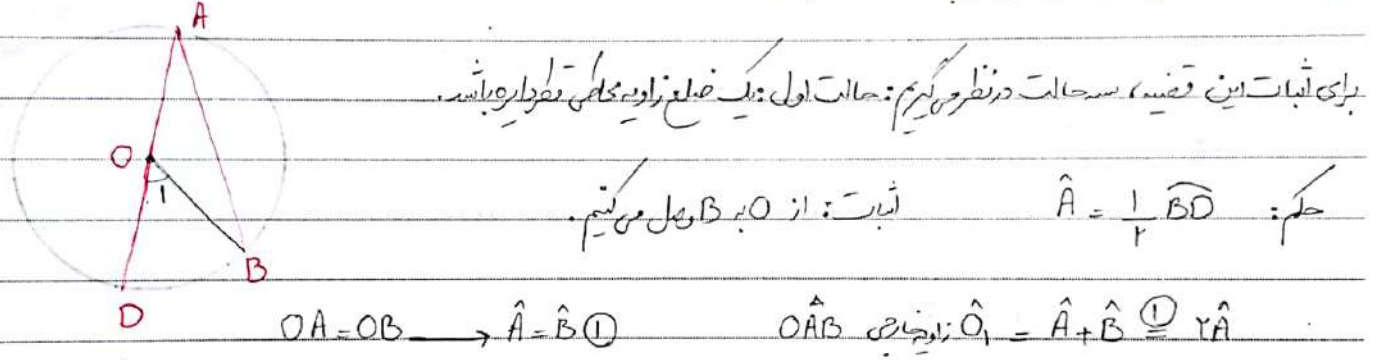 A
برای اثبات این قضیه، سه حالت در نظر می‌گیریم: حالت اول: یک ضلع زاویه محاطی قطر دایره باشد.
O
1
حکم: Â = ۱/۲ B͡D اثبات: از O به B وصل می‌کنیم.
B
D
OA = OB → Â = B̂ ① OÂB زاویه خارجی: Ô₁ = Â + B̂ ①= ۲Â